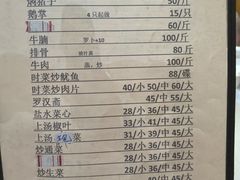 焖猪手 50/斤
鹅掌 4只起做 15/只
60/斤
牛腩 萝卜+10 100/斤
排骨 80斤
牛肉 蒸,炒 100/斤
时菜炒鱿鱼 88/碟
时菜炒肉片 40/小 50/中 60/大
罗汉斋 45/中 55/大
盐水菜心 28/小 36/中 45/大
上汤椒叶 31/小 39/中 45/大
上汤 菜 33/小 41/中 45/大
炒通菜 28/小 36/中 45/大
28/小 36/中 45/大
炒生菜 28/小 36/中 45/大